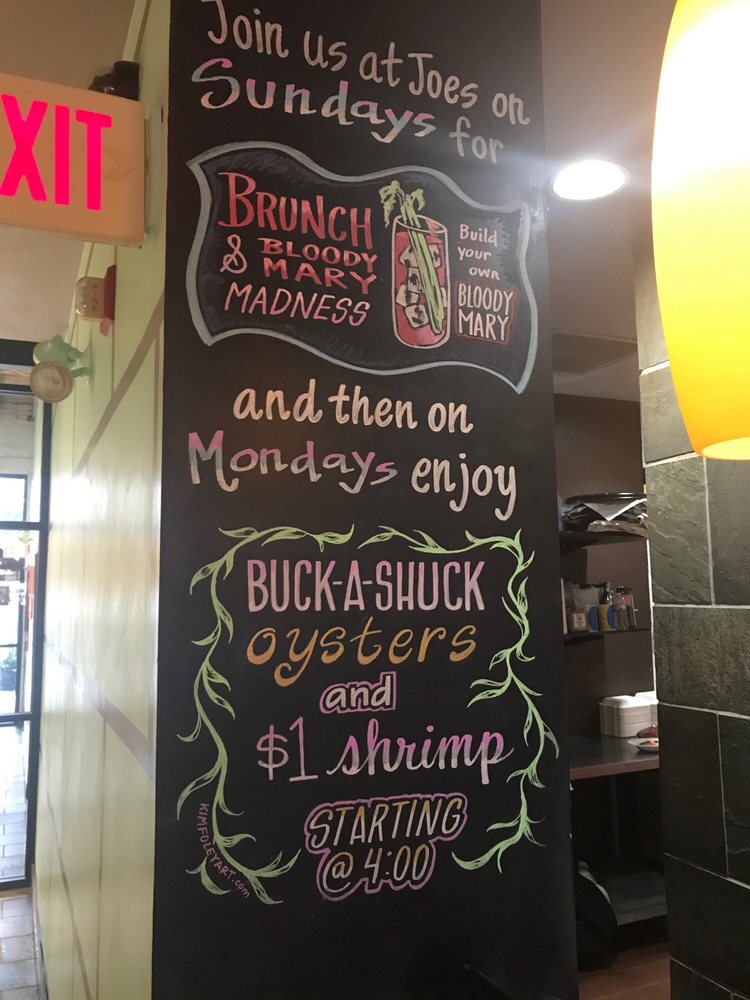 Join us at Joes on
Sundays for
BRUNCH
& BLOODY
MARY
MADNESS
Build
your
own
BLOODY
MARY
and then on
Mondays enjoy
BUCK-A-SHUCK
oysters
and
$1 shrimp
STARTING
@ 4:00
KIMFOLEYART.com
EXIT
FIRE